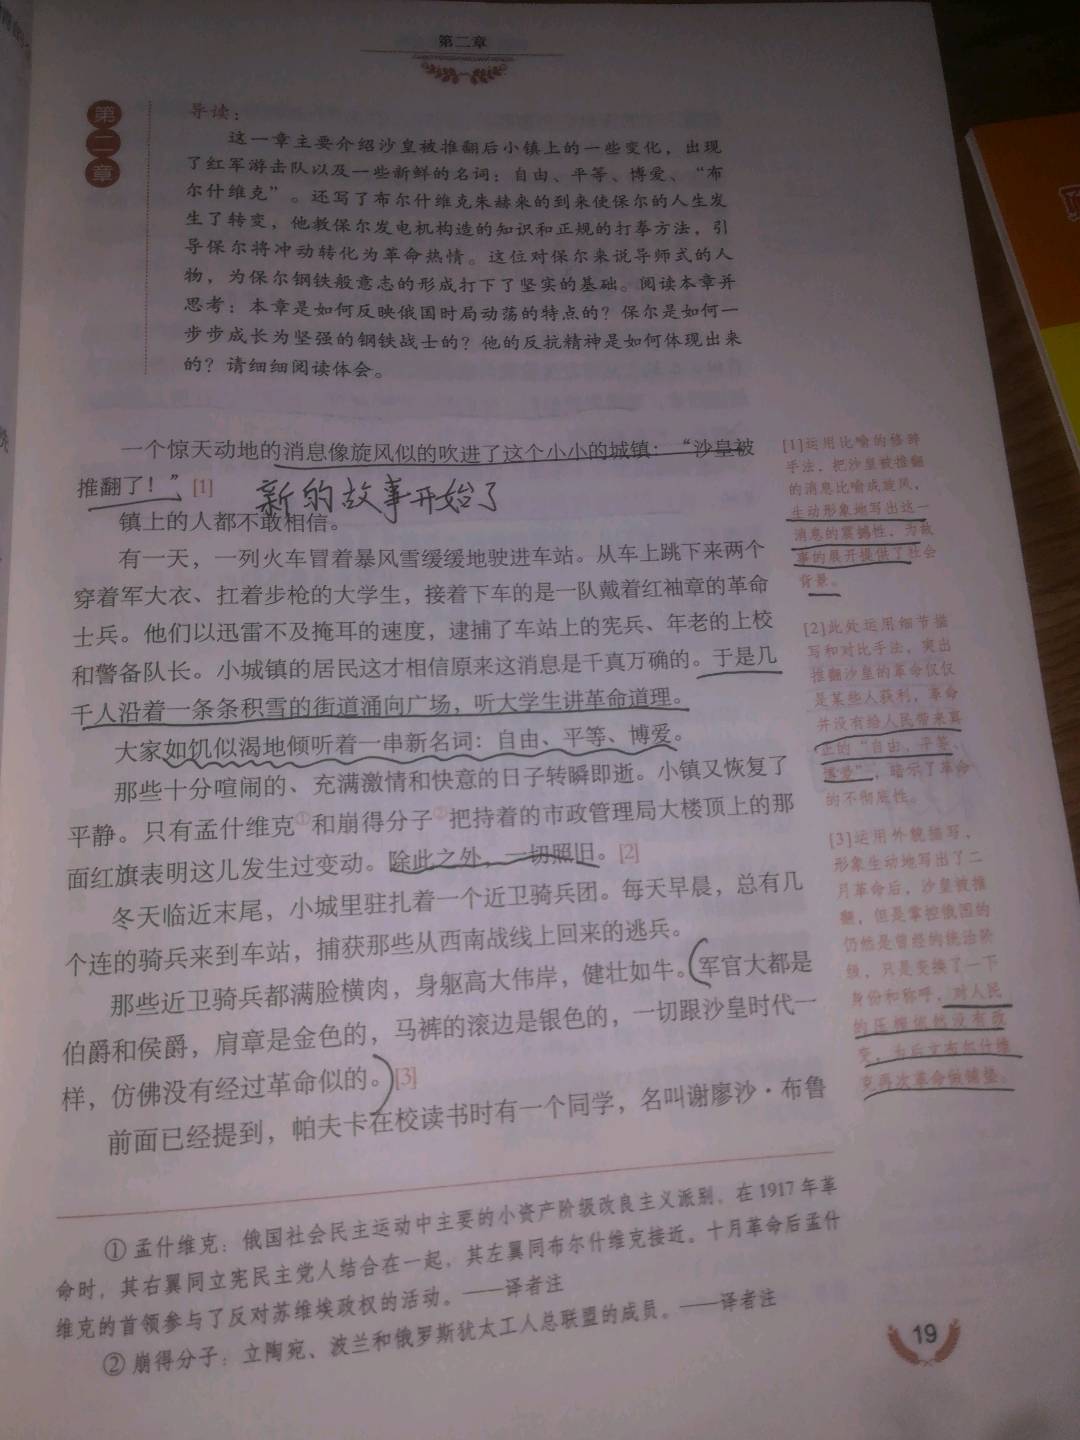 第二章
第二章
导读：
这一章主要介绍沙皇被推翻后小镇上的一些变化，出现
了红军游击队以及一些新鲜的名词：自由、平等、博爱、“布
尔什维克”。还写了布尔什维克朱赫来的到来使保尔的人生发
生了转变，他教保尔发电机构造的知识和正规的打拳方法，引
导保尔将冲动转化为革命热情。这位对保尔来说导师式的人
物，为保尔钢铁般意志的形成打下了坚实的基础。阅读本章并
思考：本章是如何反映俄国时局动荡的特点的？保尔是如何一
步步成长为坚强的钢铁战士的？他的反抗精神是如何体现出来
的？请细细阅读体会。
一个惊天动地的消息像旋风似的吹进了这个小小的城镇：“沙皇被
推翻了！”[1]
新的故事开始了
镇上的人都不敢相信。
有一天，一列火车冒着暴风雪缓缓地驶进车站。从车上跳下来两个
穿着军大衣、扛着步枪的大学生，接着下车的是一队戴着红袖章的革命
士兵。他们以迅雷不及掩耳的速度，逮捕了车站上的宪兵、年老的上校
和警备队长。小城镇的居民这才相信原来这消息是千真万确的。于是几
千人沿着一条条积雪的街道涌向广场，听大学生讲革命道理。
大家如饥似渴地倾听着一串新名词：自由、平等、博爱。
那些十分喧闹的、充满激情和快意的日子转瞬即逝。小镇又恢复了
平静。只有孟什维克①和崩得分子②把持着的市政管理局大楼顶上的那
面红旗表明这儿发生过变动。除此之外，一切照旧。[2]
冬天临近末尾，小城里驻扎着一个近卫骑兵团。每天早晨，总有几
个连的骑兵来到车站，捕获那些从西南战线上回来的逃兵。
那些近卫骑兵都满脸横肉，身躯高大伟岸，健壮如牛。军官大都是
伯爵和侯爵，肩章是金色的，马裤的滚边是银色的，一切跟沙皇时代一
样，仿佛没有经过革命似的。[3]
前面已经提到，帕夫卡在校读书时有一个同学，名叫谢廖沙·布鲁
[1]运用比喻的修辞
手法，把沙皇被推翻
的消息比喻成旋风，
生动形象地写出这一
消息的震撼性，为故
事的展开提供了社会
背景。
[2]此处运用细节描
写和对比手法，突出
推翻沙皇的革命仅仅
是某些人获利，革命
并没有给人民带来真
正的“自由、平等、
博爱”，暗示了革命
的不彻底性。
[3]运用外貌描写，
形象生动地写出了二
月革命后，沙皇被推
翻，但是掌控俄国的
仍然是曾经的统治阶
级，只是变换了一下
身份和称呼，对人民
的压榨依然没有改
变，为后文布尔什维
克再次革命做铺垫。
①孟什维克：俄国社会民主运动中主要的小资产阶级改良主义派别，在1917年革
命时，其右翼同立宪民主党人结合在一起，其左翼同布尔什维克接近。十月革命后孟什
维克的首领参与了反对苏维埃政权的活动。——译者注
②崩得分子：立陶宛、波兰和俄罗斯犹太工人总联盟的成员。——译者注
19